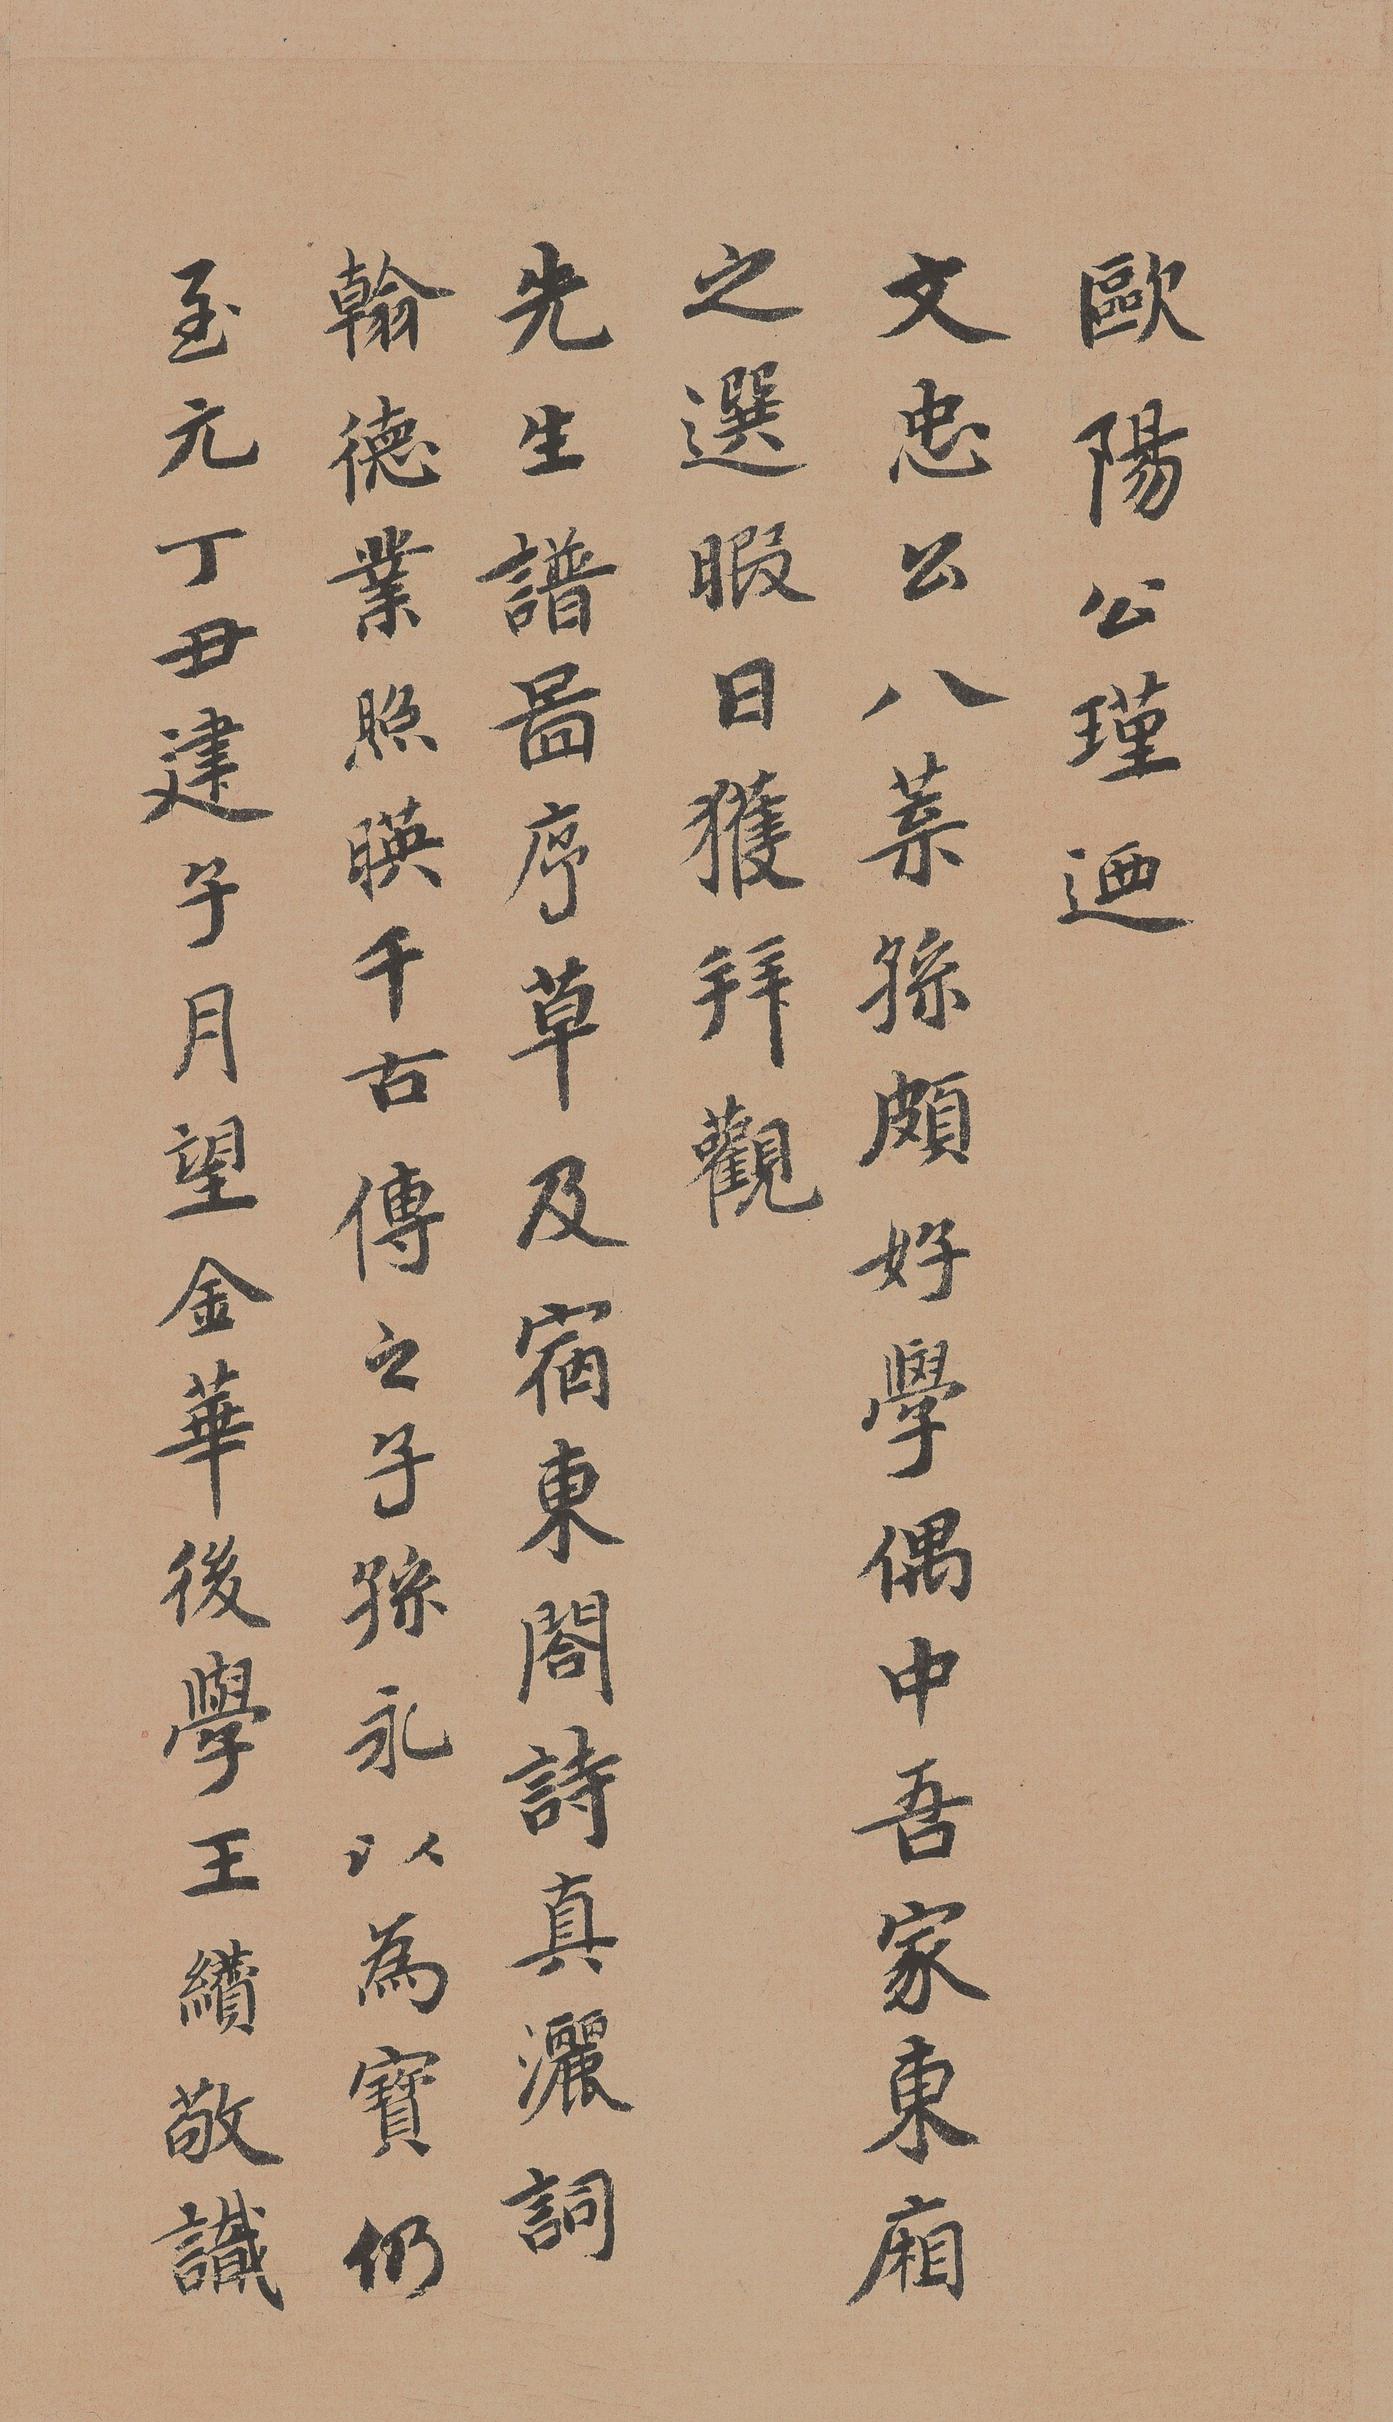 歐陽公瑾迺
文忠公八葉孫頗好學偶中吾家東廂
之選暇日獲拜觀
先生譜圖序草及宿東閣詩真灑詞
翰德業照暎千古傳之子孫永以為寶仍
至元丁丑建子月望金華後學王纘敬識